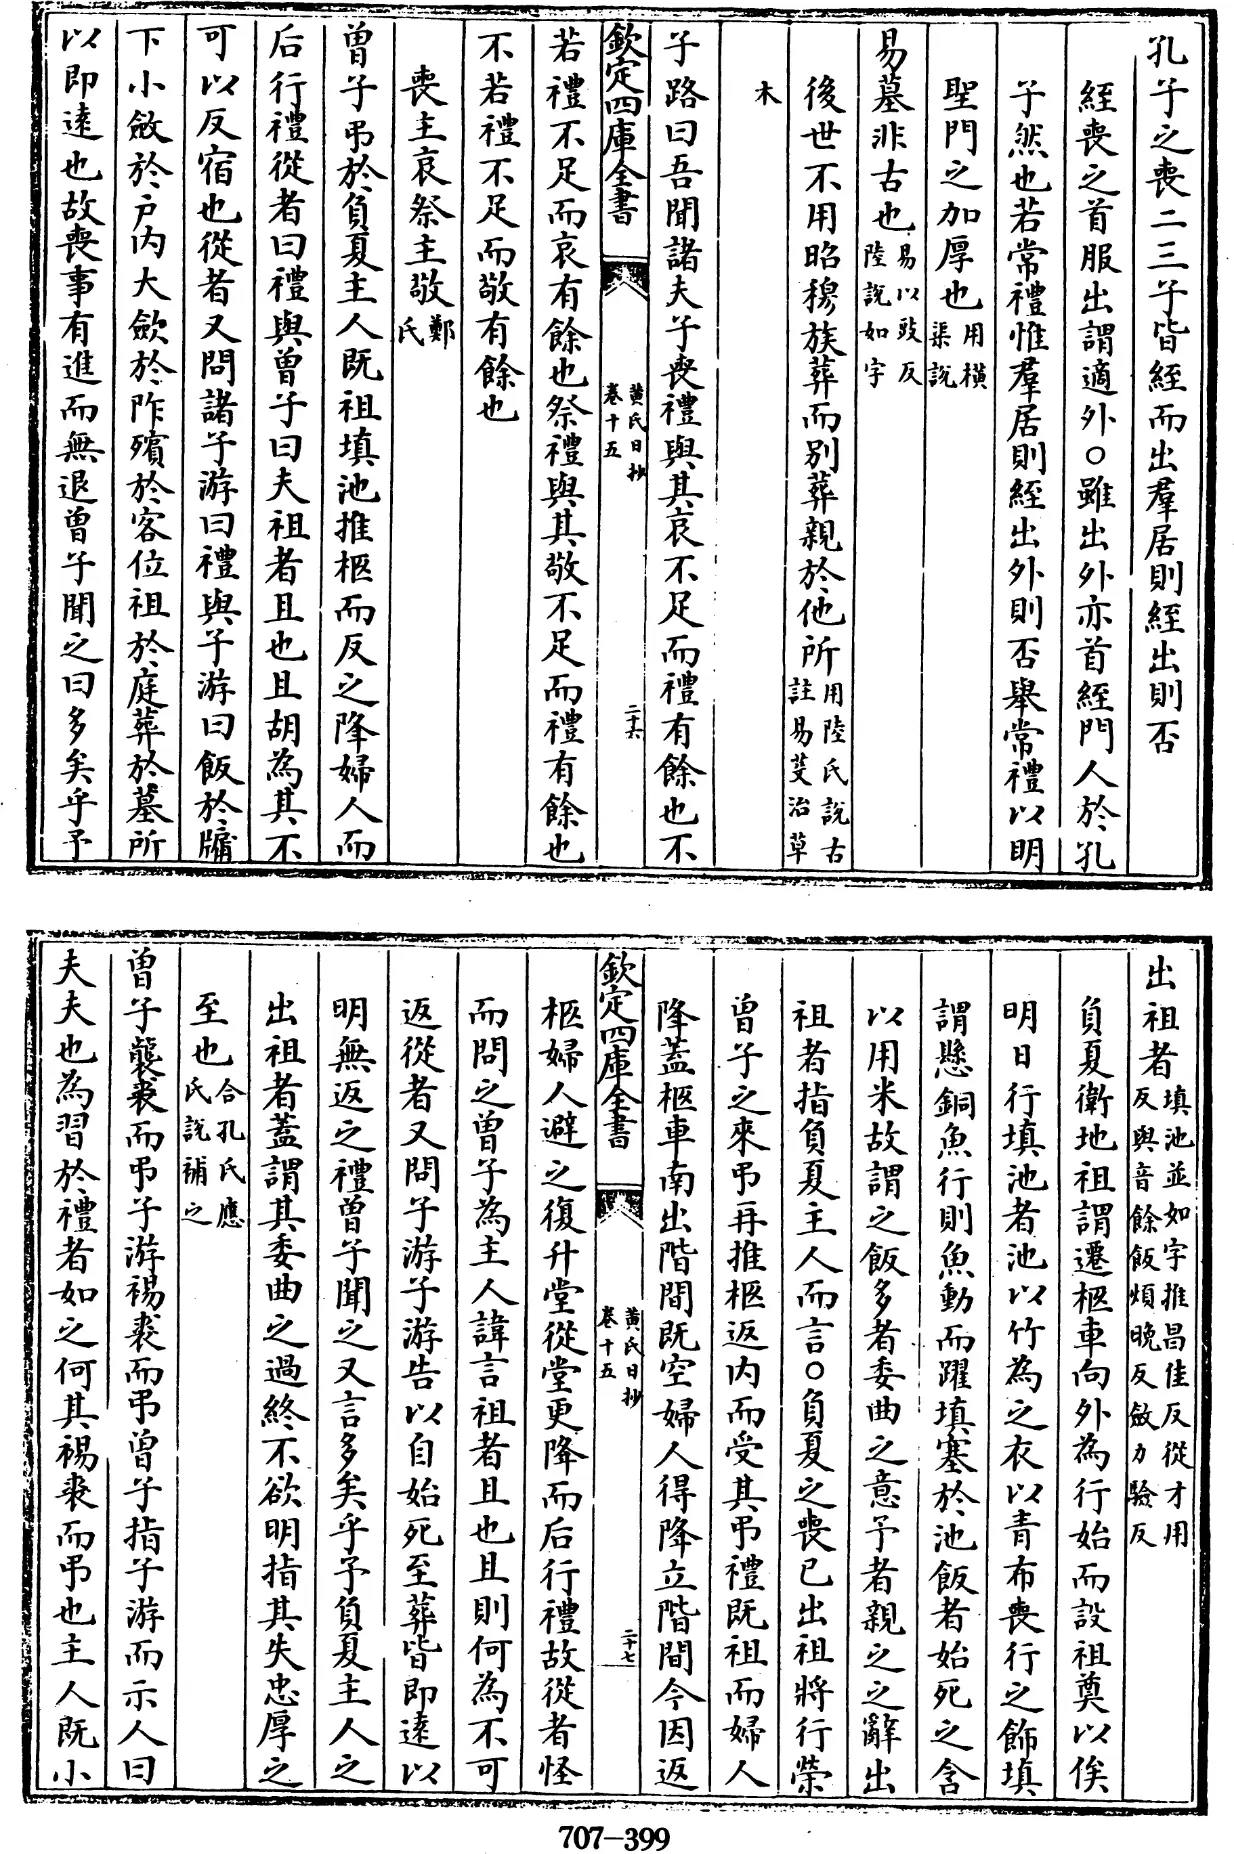 孔子之喪二三子皆絰而出羣居則絰出則否
絰喪之首服出謂適外○雖出外亦首絰門人於孔
子然也若常禮惟羣居則絰出外則否舉常禮以明
聖門之加厚也用橫渠說
易墓非古也易以豉反陸說如字
後世不用昭穆族葬而別葬親於他所用陸氏說古註易芟治草
木
子路曰吾聞諸夫子喪禮與其哀不足而禮有餘也不
欽定四庫全書
黄氏日抄
卷十五
二十六
若禮不足而哀有餘也祭禮與其敬不足而禮有餘也
不若禮不足而敬有餘也
喪主哀祭主敬鄭氏
曾子弔於負夏主人既祖填池推柩而反之降婦人而
后行禮從者曰禮與曾子曰夫祖者且也且胡為其不
可以反宿也從者又問諸子游曰禮與子游曰飯於牖
下小斂於户内大歛於阼殯於客位祖於庭葬於墓所
以即逺也故喪事有進而無退曾子聞之曰多矣乎予
出祖者填池並如字推昌佳反從才用反與音餘飯煩晚反斂力驗反
負夏衛地祖謂遷柩車向外為行始而設祖奠以俟
明日行填池者池以竹為之衣以青布喪行之飾填
謂懸銅魚行則魚動而躍填塞於池飯者始死之含
以用米故謂之飯多者委曲之意予者親之之辭出
祖者指負夏主人而言○負夏之喪已出祖將行榮
曾子之來弔再推柩返内而受其弔禮既祖而婦人
降蓋柩車南出階間既空婦人得降立階間今因返
欽定四庫全書
黄氏日抄
卷十五
二十七
柩婦人避之復升堂從堂更降而后行禮故從者怪
而問之曾子為主人諱言祖者且也且則何為不可
返從者又問子游子游告以自始死至葬皆即逺以
明無返之禮曾子聞之又言多矣乎予負夏主人之
出祖者蓋謂其委曲之過終不欲明指其失忠厚之
至也合孔氏應氏說補之
曾子襲裘而弔子游裼裘而弔曾子指子游而示人曰
夫夫也為習於禮者如之何其裼裘而弔也主人既小
707-399